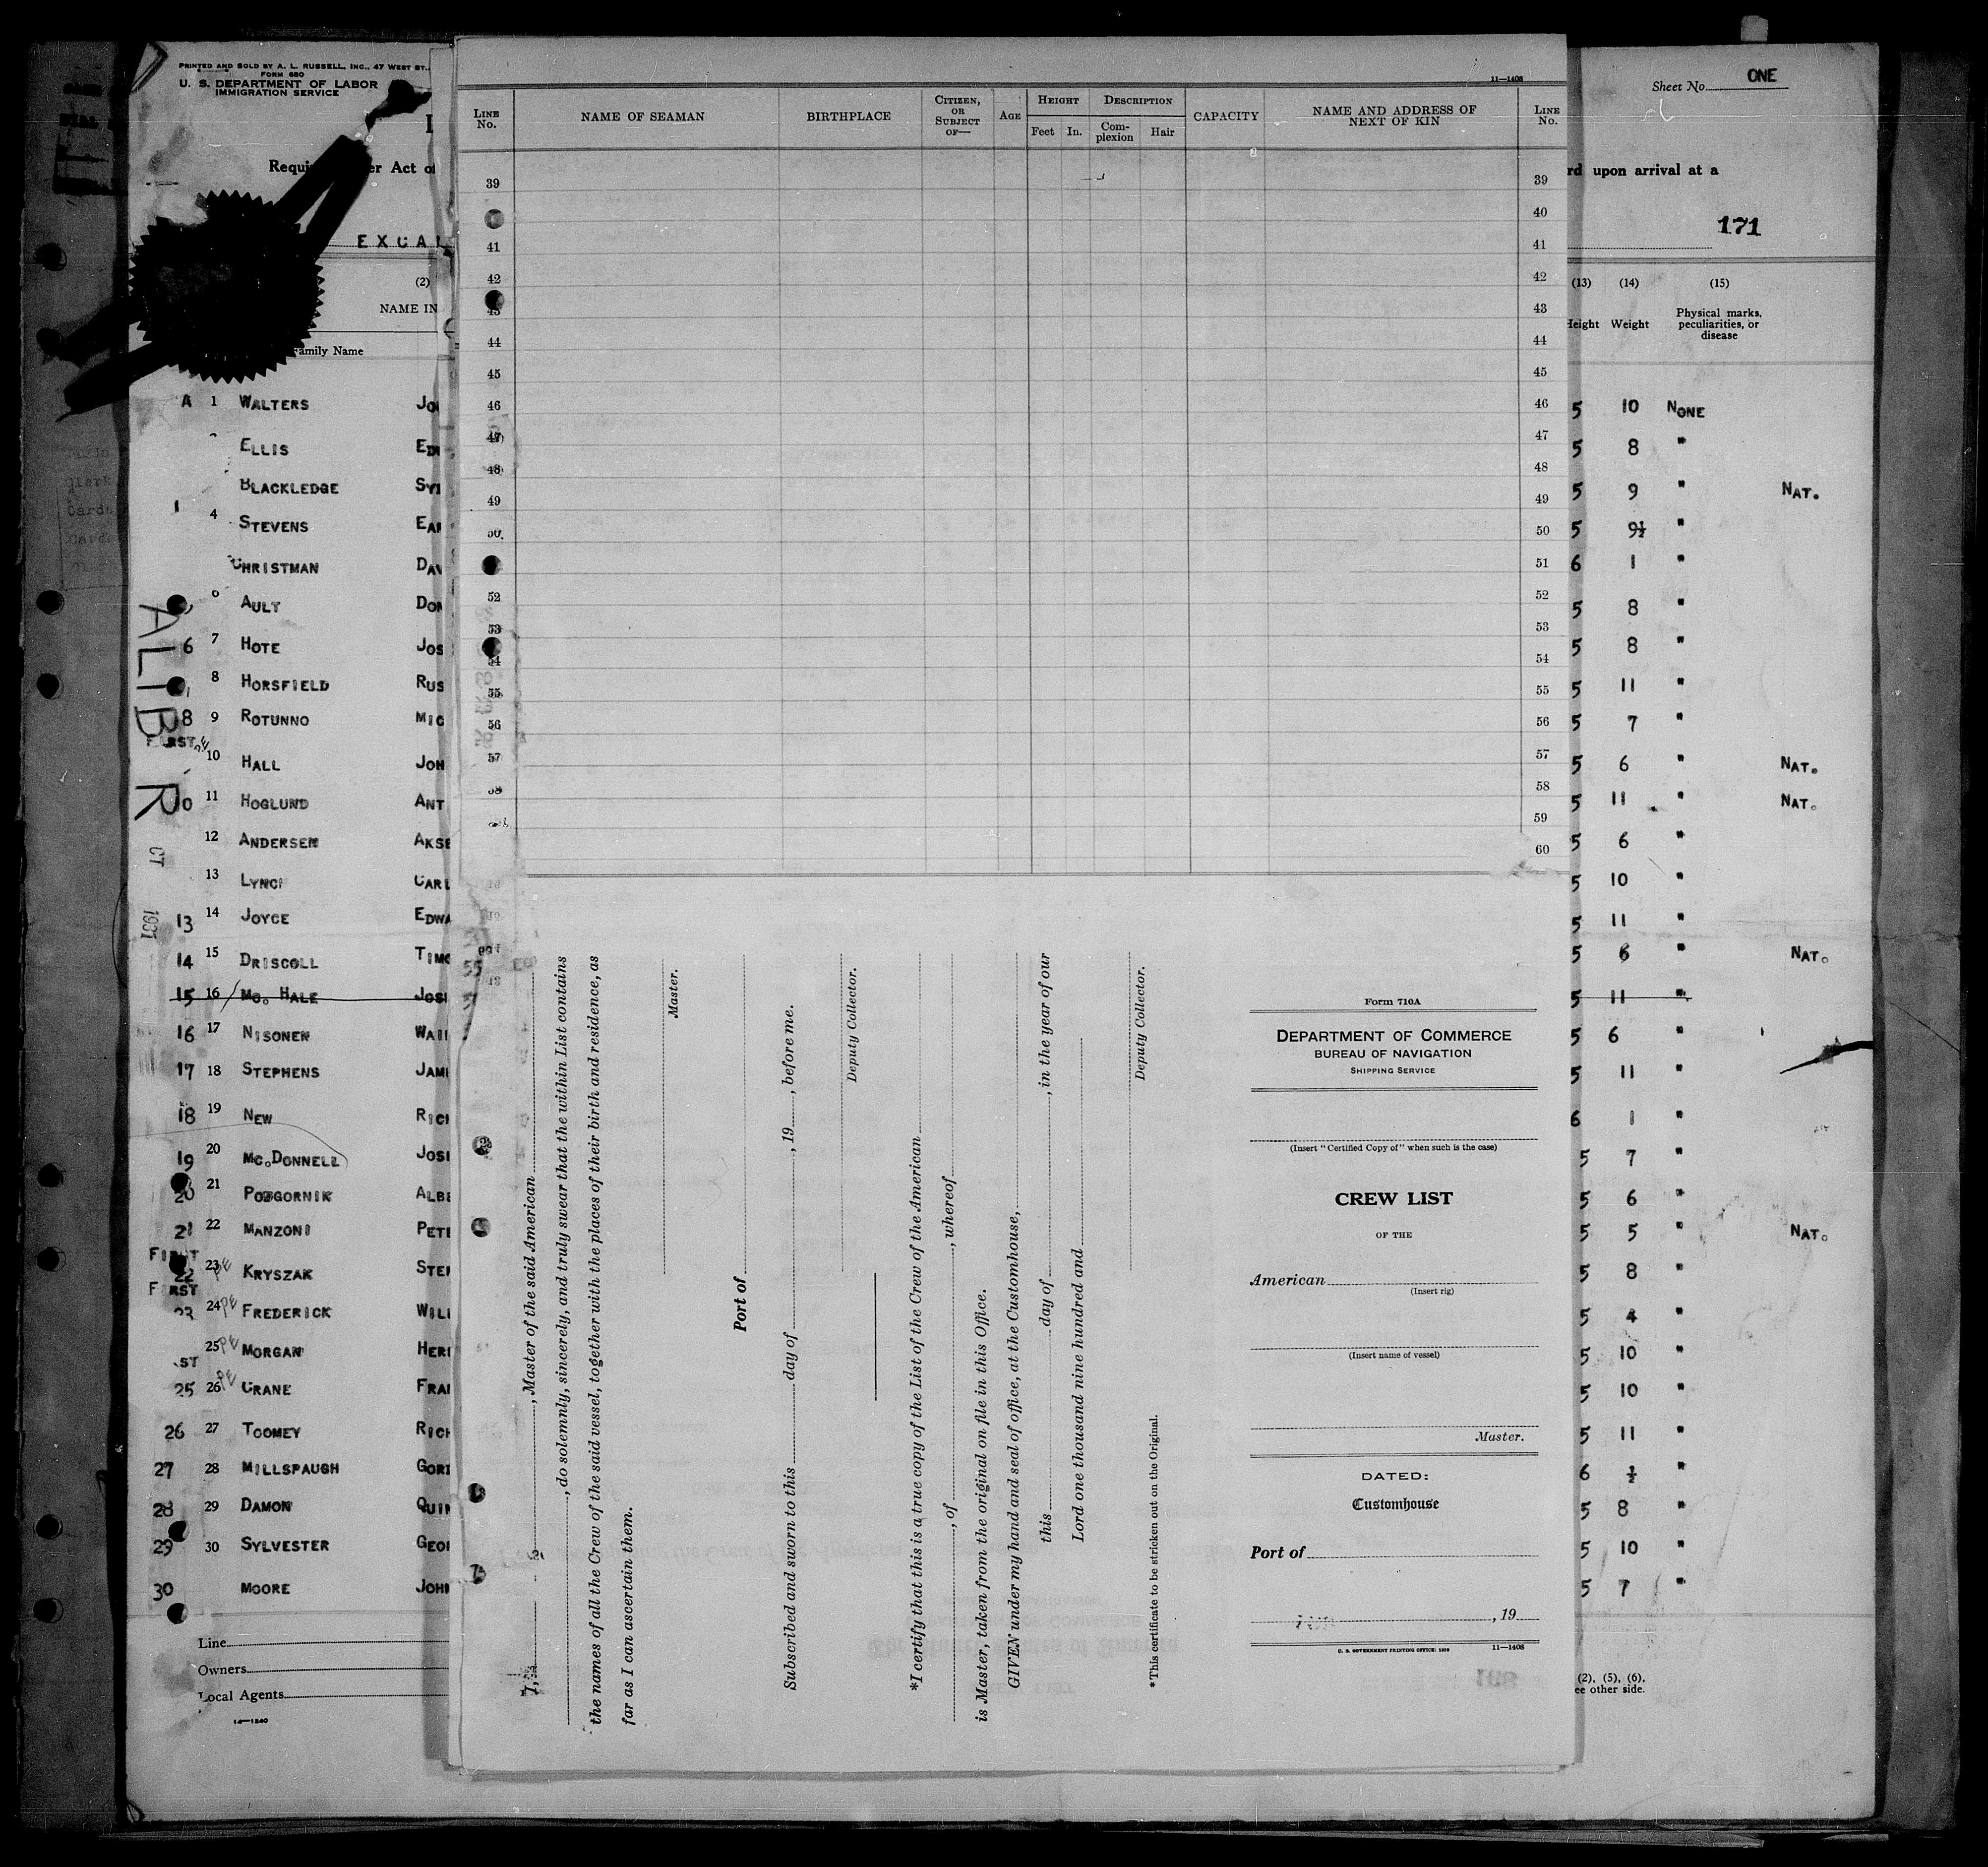 PRINTED AND SOLD BY A. L. RUSSELL, INC., 47 WEST ST.,
FORM 680
U. S. DEPARTMENT OF LABOR
IMMIGRATION SERVICE
Sheet No. ONE
Act of
rd upon arrival at a
EXCAL
171
(2)
NAME IN
Family Name
(13) (14) (15)
Height Weight Physical marks, peculiarities, or disease
A 1 WALTERS 5 10 NONE
ELLIS 5 8 "
BLACKLEDGE 5 9 " NAT.
4 STEVENS 5 9½ "
CHRISTMAN 6 1 "
AULT 5 8 "
6 7 HOTE JOS 5 8 "
8 HORSFIELD RUS 5 11 "
8 9 ROTUNNO MIC 5 7 "
FIRST
10 HALL JOH 5 6 " NAT.
11 HOGLUND ANT 5 11 " NAT.
12 ANDERSEN AKSE 5 6 "
13 LYNCH CARL 5 10 "
13 14 JOYCE EDWA 5 11 "
14 15 DRISCOLL TIMO 5 6 " NAT.
15 16 MC. HALE JOSE 5 11 "
16 17 NISONEN WAI 5 6 "
17 18 STEPHENS JAM 5 11 "
18 19 NEW RIC 6 1 "
19 20 MC. DONNELL JOS 5 7 "
20 21 POGORNIK ALB 5 6 "
21 22 MANZONI PET 5 5 " NAT.
FIRST
22 23 PE KRYSZAK STE 5 8 "
FIRST
23 24 PE FREDERICK WIL 5 4 "
ST
25 PE MORGAN HER 5 10 "
25 26 PE CRANE FRA 5 10 "
26 27 TOOMEY RICH 5 11 "
27 28 MILLSPAUGH GOR 6 ½ "
28 29 DAMON QUIN 5 8 "
29 30 SYLVESTER GEO 5 10 "
30 MOORE JOHN 5 7 "
ALIB R
1931
Line
Owners
Local Agents
14—1240
(2), (5), (6),
ee other side.
11—1408
LINE No. NAME OF SEAMAN BIRTHPLACE CITIZEN, OR SUBJECT OF— AGE HEIGHT Feet In. DESCRIPTION Complexion Hair CAPACITY NAME AND ADDRESS OF NEXT OF KIN LINE No.
39 39
40
41 41
42 42
43 43
44 44
45 45
46 46
47 47
48 48
49 49
50 50
51
52 52
53 53
54 54
55 55
56 56
57 57
58 58
59
60
I, , Master of the said American
, do solemnly, sincerely, and truly swear that the within List contains
the names of all the Crew of the said vessel, together with the places of their birth and residence, as
far as I can ascertain them.
Master.
Port of
Subscribed and sworn to this day of , 19 , before me.
Deputy Collector.
*I certify that this is a true copy of the List of the Crew of the American
, of , whereof
is Master, taken from the original on file in this Office.
GIVEN under my hand and seal of office, at the Customhouse,
this day of , in the year of our
Lord one thousand nine hundred and
Deputy Collector.
*This certificate to be stricken out on the Original.
Form 710A
DEPARTMENT OF COMMERCE
BUREAU OF NAVIGATION
SHIPPING SERVICE
(Insert "Certified Copy of" when such is the case)
CREW LIST
OF THE
American
(Insert rig)
(Insert name of vessel)
Master.
DATED:
Customhouse
Port of
, 19
U. S. GOVERNMENT PRINTING OFFICE: 1928 11—1408